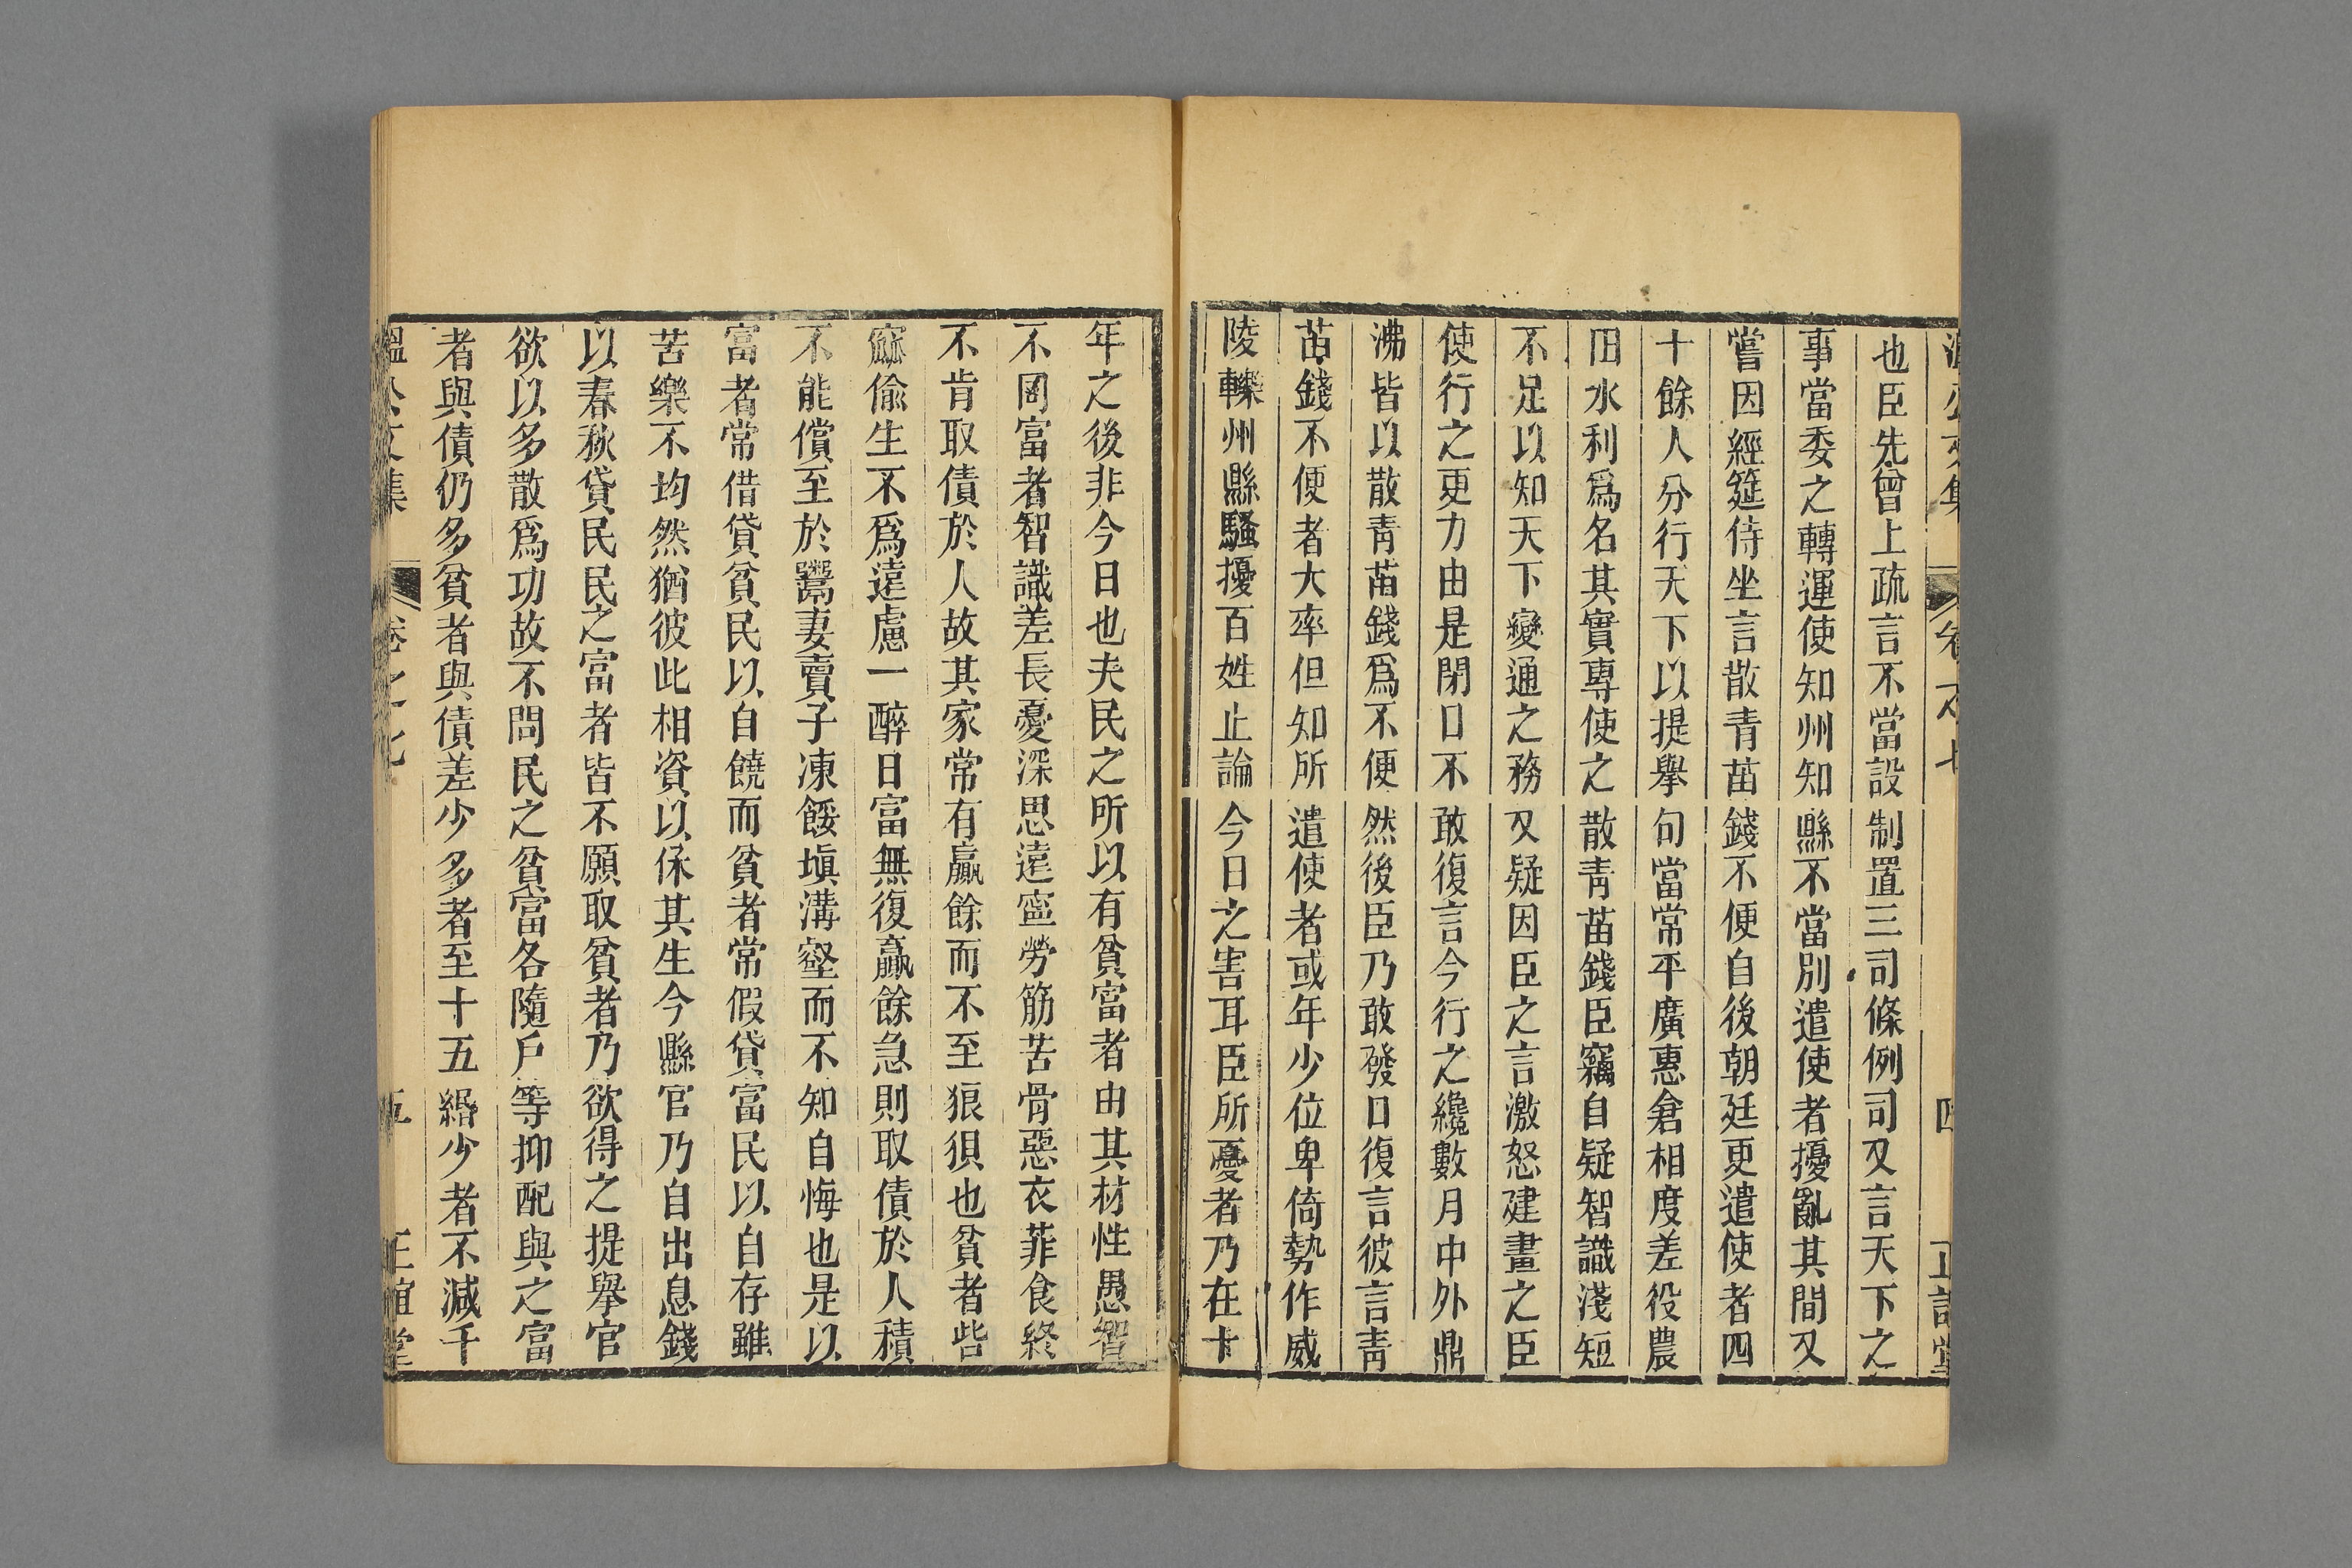 溫公文集　卷之七　四　正誼堂
也臣先曾上疏言不當設制置三司條例司又言天下之
事當委之轉運使知州知縣不當別遣使者擾亂其間又
嘗因經筵侍坐言散青苗錢不便自後朝廷更遣使者四
十餘人分行天下以提舉句當常平廣惠倉相度差役農
田水利爲名其實專使之散青苗錢臣竊自疑智識淺短
不足以知天下變通之務又疑因臣之言激怒建畫之臣
使行之更力由是閉口不敢復言今行之纔數月中外鼎
沸皆以散青苗錢爲不便然後臣乃敢發口復言彼言青
苗錢不便者大率但知所遣使者或年少位卑倚勢作威
陵轢州縣騷擾百姓止論今日之害耳臣所憂者乃在十
年之後非今日也夫民之所以有貧富者由其材性愚智
不同富者智識差長憂深思遠寧勞筋苦骨惡衣菲食終
不肯取債於人故其家常有贏餘而不至狼狽也貧者呰
窳偷生不爲遠慮一醉日富無復贏餘急則取債於人積
不能償至於鬻妻賣子凍餒塡溝壑而不知自悔也是以
富者常借貸貧民以自饒而貧者常假貸富民以自存雖
苦樂不均然猶彼此相資以保其生今縣官乃自出息錢
以春秋貸民民之富者皆不願取貧者乃欲得之提舉官
欲以多散爲功故不問民之貧富各隨戶等抑配與之富
者與債仍多貧者與債差少多者至十五緡少者不減千
溫公文集　卷之七　五　正誼堂